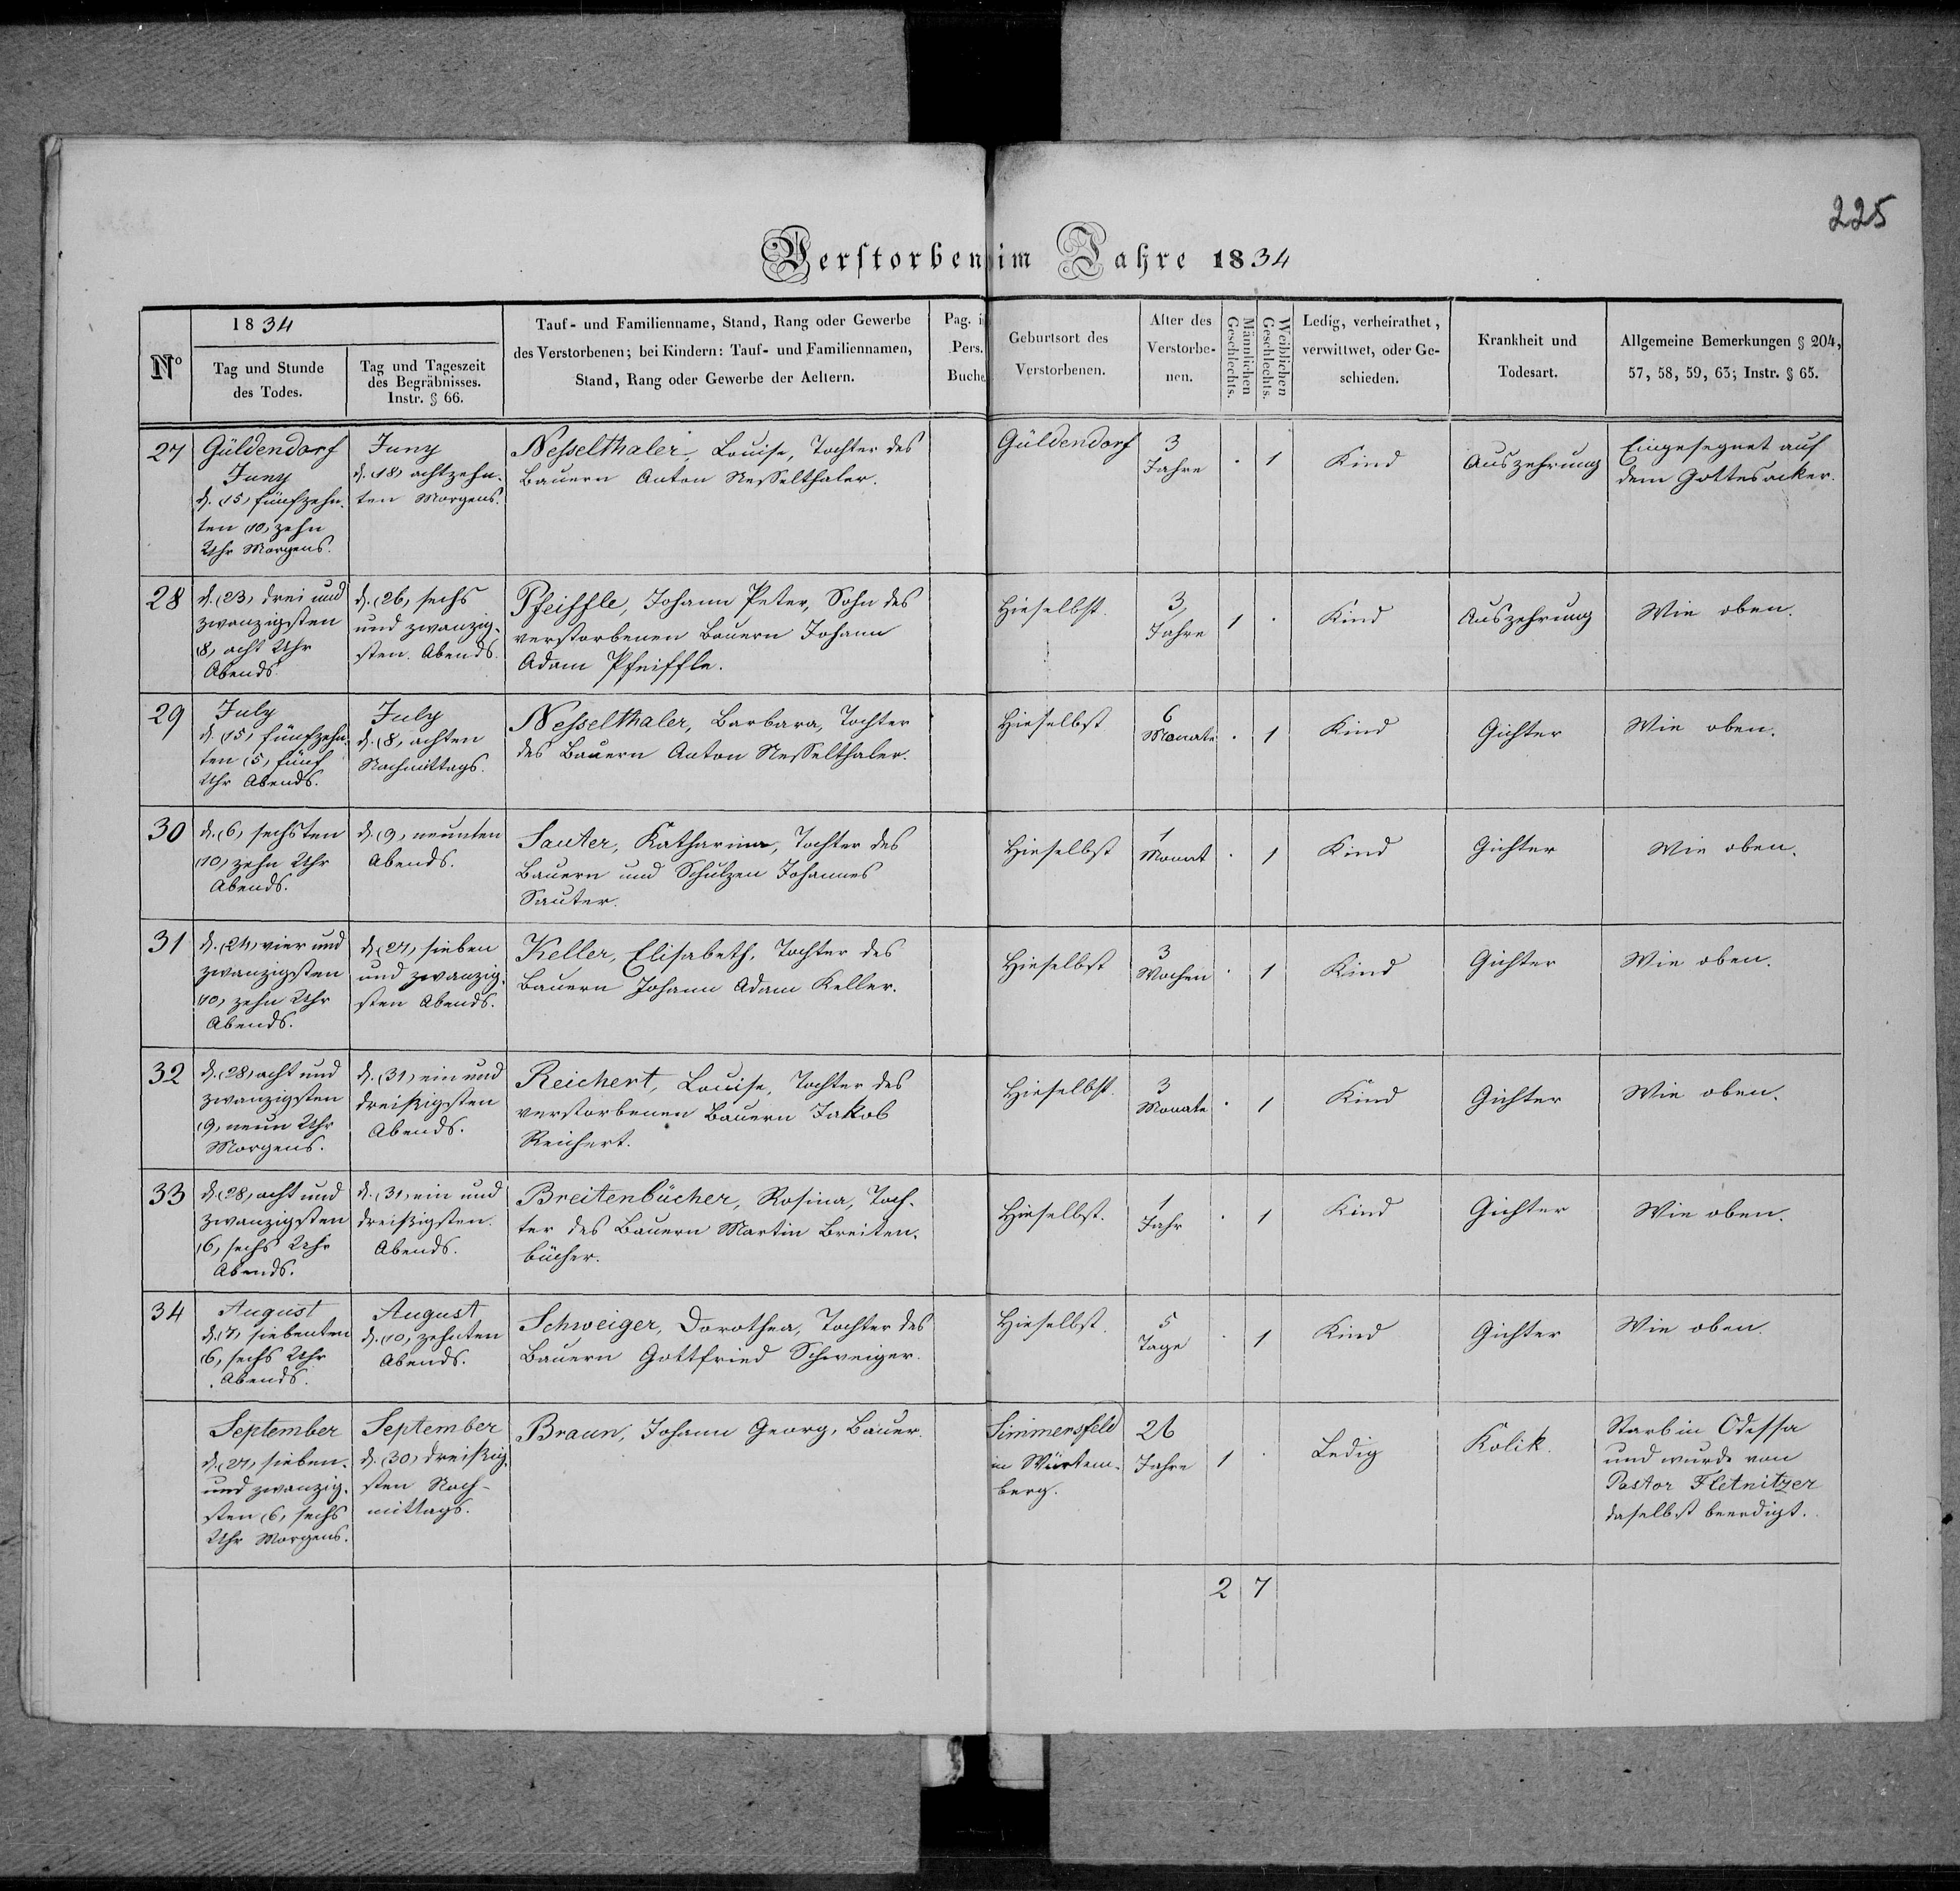 225
Verstorben im Jahre 1834
Nº
1834
Tag und Stunde
des Todes.
Tag und Tageszeit
des Begräbnisses.
Instr. § 66.
Tauf- und Familienname, Stand, Rang oder Gewerbe
des Verstorbenen; bei Kindern: Tauf- und Familiennamen,
Stand, Rang oder Gewerbe der Aeltern.
Pag. i
Pers.
Buche
Geburtsort des
Verstorbenen.
Alter des
Verstorbe-
nen.
Männlichen
Geschlechts.
Weiblichen
Geschlechts.
Ledig, verheirathet,
verwittwet, oder Ge-
schieden.
Krankheit und
Todesart.
Allgemeine Bemerkungen § 204,
57, 58, 59, 63; Instr. § 65.
27
Güldendorf
Juny
d. (15) fünfzehn-
ten (10) zehn
Uhr Morgens.
Juny
d. (18) achtzehn-
ten Morgens.
Nesselthaler, Louise, Tochter des
Bauern Anton Nesselthaler.
Güldendorf
3
Jahre
.
1
Kind
Auszehrung
Eingesegnet auf
dem Gottesacker.
28
d. (23) drei und
zwanzigsten
(8) acht Uhr
Abends.
d. (26) sechs
und zwanzig-
sten. Abends.
Pfeiffle, Johann Peter, Sohn des
verstorbenen Bauern Johann
Adam Pfeiffle.
Hieselbst.
3
Jahre
1
.
Kind
Auszehrung
Wie oben.
29
July
d. (15) fünfzehn-
ten (5) fünf
Uhr Abends.
July
d. (8) achten
Nachmittags.
Nesselthaler, Barbara, Tochter
des Bauern Anton Nesselthaler.
Hieselbst
6
Monate
.
1
Kind
Gichter
Wie oben.
30
d. (6) sechsten
(10) zehn Uhr
Abends.
d. (9) neunten
Abends.
Sauter, Katharina, Tochter des
Bauern und Schulzen Johannes
Sauter.
Hieselbst
1
Monat
.
1
Kind
Gichter
Wie oben.
31
d. (24) vier und
zwanzigsten
(10) zehn Uhr
Abends.
d. (27) sieben
und zwanzig-
sten Abends.
Keller, Elisabeth, Tochter des
Bauern Johann Adam Keller.
Hieselbst
3
Wochen
.
1
Kind
Gichter
Wie oben.
32
d. (28) acht und
zwanzigsten
(9) neun Uhr
Morgens.
d. (31) ein und
dreißigsten
Abends.
Reichert, Louise, Tochter des
verstorbenen Bauern Jakob
Reichert.
Hieselbst.
3
Monate
.
1
Kind
Gichter
Wie oben.
33
d. (28) acht und
zwanzigsten
(6) sechs Uhr
Abends.
d. (31) ein und
dreißigsten.
Abends.
Breitenbücher, Rosina, Toch-
ter des Bauern Martin Breiten-
bücher.
Hieselbst.
1
Jahr
.
1
Kind
Gichter
Wie oben.
34
August
d. (7) siebenten
(6) sechs Uhr
Abends.
August
d. (10) zehnten
Abends.
Schweiger, Dorothea, Tochter des
Bauern Gottfried Schweiger.
Hieselbst.
5
Tage
.
1
Kind
Gichter
Wie oben.
September
d. (27) sieben-
und zwanzig-
sten (6) sechs
Uhr Morgens.
September
d. (30) dreißig-
sten Nach-
mittags.
Braun, Johann Georg, Bauer.
Simmensfeld
in Würtem-
berg.
26
Jahre
1
.
Ledig
Kolik.
Starb in Odessa
und wurde von
Pastor Fletnitzer
daselbst beerdigt.
2
7